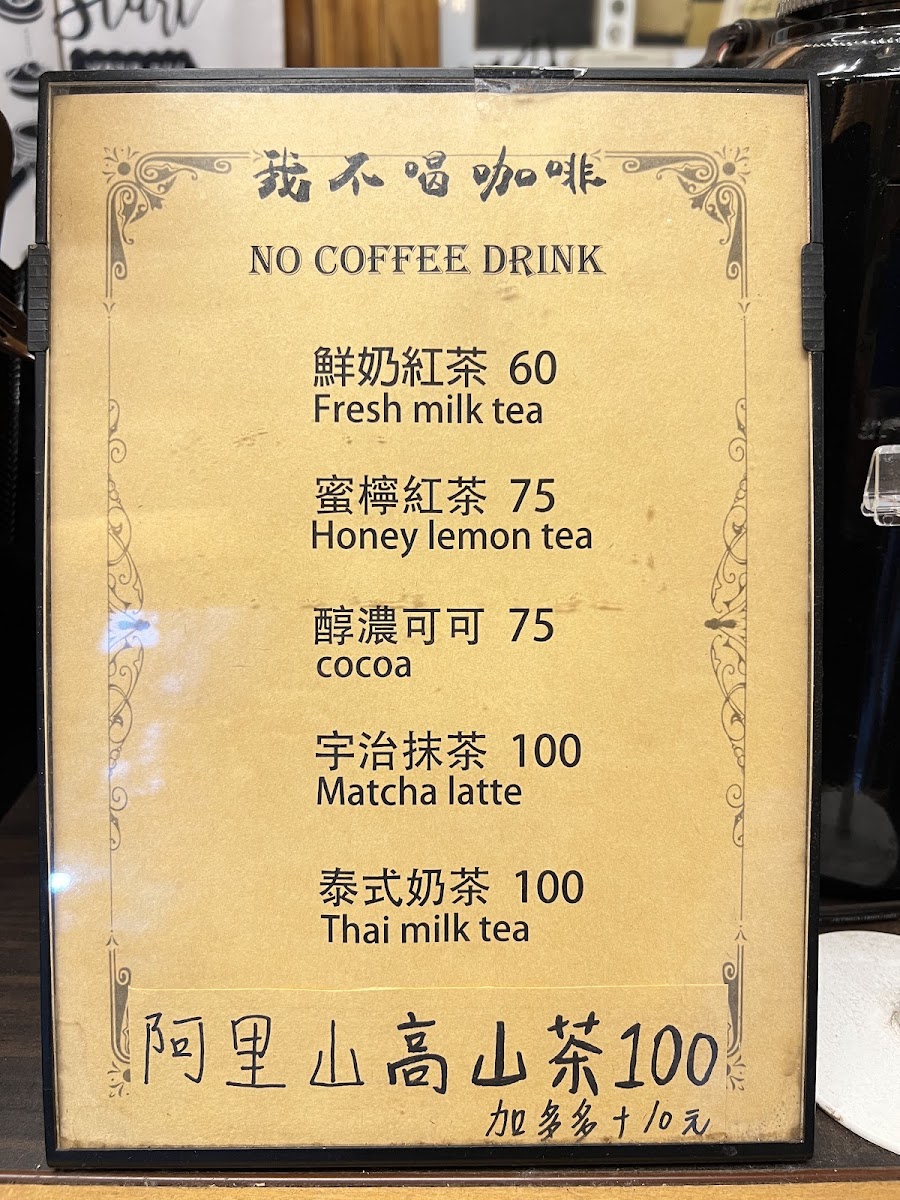 Start
我不喝咖啡
NO COFFEE DRINK
鮮奶紅茶 60
Fresh milk tea
蜜檸紅茶 75
Honey lemon tea
醇濃可可 75
cocoa
宇治抹茶 100
Matcha latte
泰式奶茶 100
Thai milk tea
阿里山高山茶100
加多多+10元